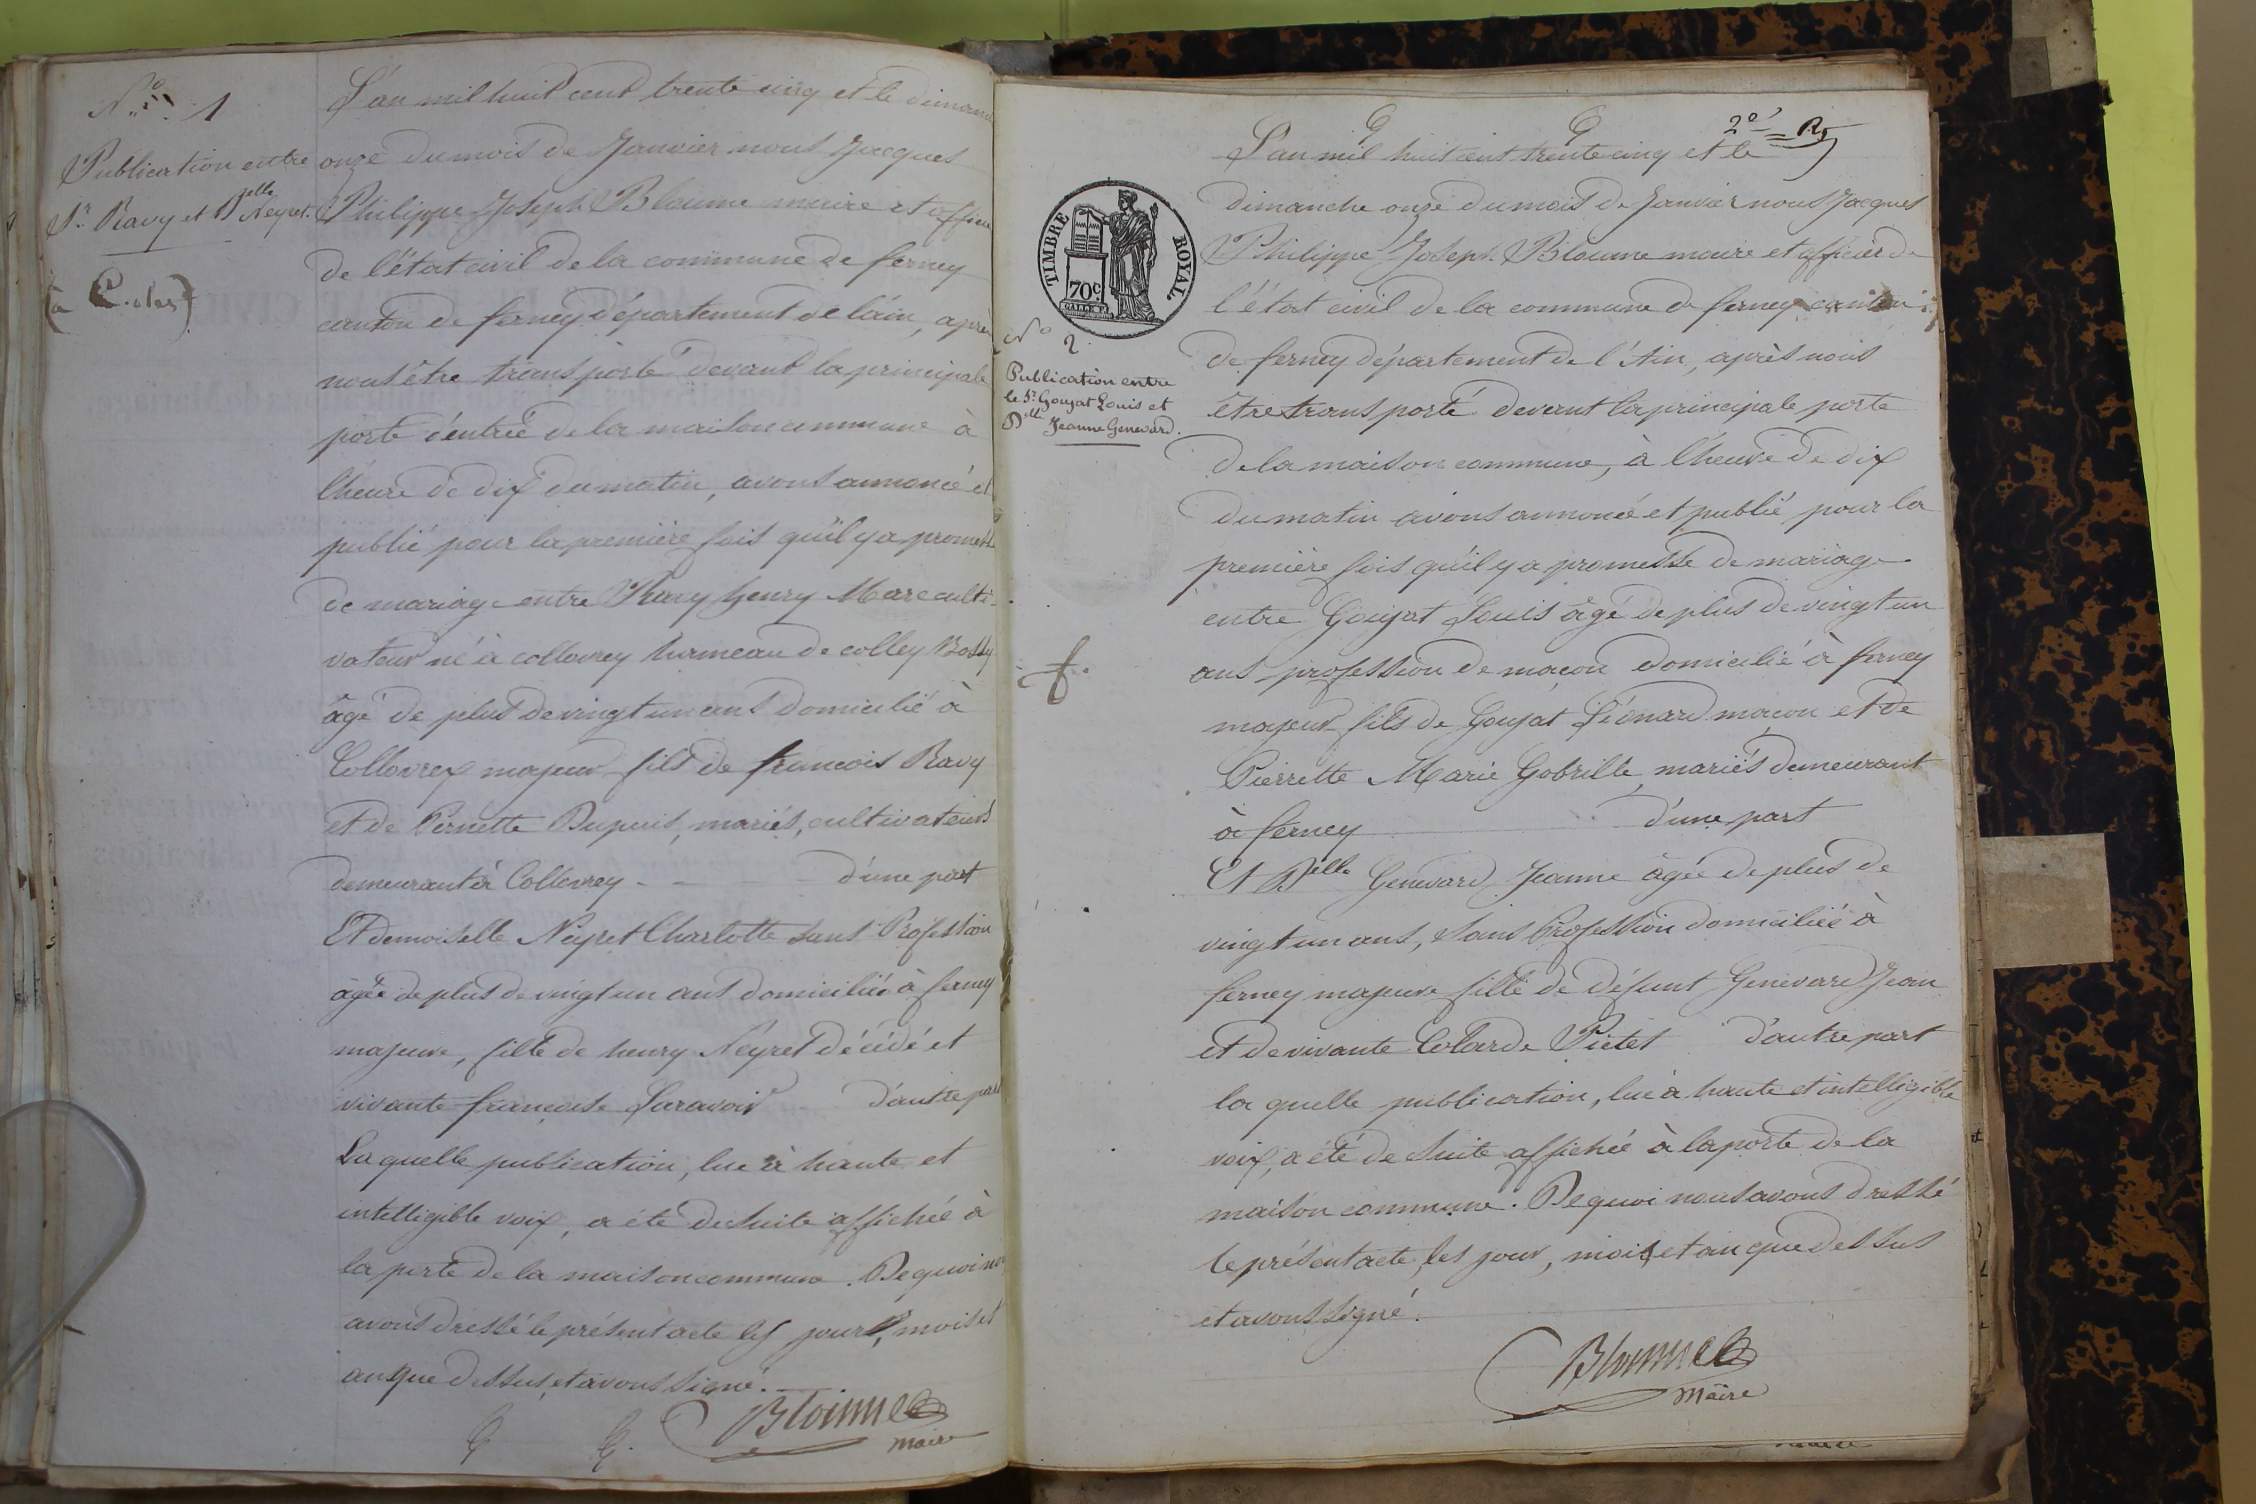 N.° 1
Publication entre
Sr. Ravy et Delle Neyret.
L'an mil huit cent trente cinq et le dimanc
onze du mois de Janvier nous Jacques
Philippe Joseph Bloume maire et officier
de l'état civil de la commune de ferney
canton de ferney département de l'ain, après
nous être transporté devant la principale
porte d'entrée de la maison commune à
l'heure de dix du matin, avons annoncé et
publié pour la première fois qu'il y a promesse
de mariage entre Ravy henry Marc culti-
vateur né à collovrey hameau de colley Bossy
âgé de plus de vingt un ans domicilié à
Collovrex majeur fils de francois Ravy
et de Pernette Dupuis, mariés, cultivateurs
demeurant à Collovrey - d'une part
Et demoiselle Neyret Charlotte sans Profession
âgée de plus de vingt un ans domiciliée à ferney
majeure, fille de henry Neyret décédé et
vivante françoise d'autre part
La quelle publication, lue à haute et
intelligible voix, a été de suite affichée à
la porte de la maison commune. De quoi nous
avons dressé le présent acte les jour, mois et
an que dessus, et avons signé.
Bloume
maire
2°
L'an mil huit cent trente cinq et le
TIMBRE ROYAL
70c
N° 2
Publication entre
le Sr. Goujat Louis et
Delle Jeanne Genevard.
dimanche onze du mois de Janvier nous Jacques
Philippe Joseph Bloume maire et officier de
l'état civil de la commune de ferney canton
de ferney département de l'Ain, après nous
être transporté devant la principale porte
de la maison commune, à l'heure de dix
du matin avons annoncé et publié pour la
première fois qu'il y a promesse de mariage
entre Goujat Louis âgé de plus de vingt un
ans profession de maçon domicilié à ferney
majeur fils de Goujat Liénard maçon et de
Pierrette Marie Gobrille, mariés demeurant
à ferney d'une part
Et Delle Genevard Jeanne âgée de plus de
vingt un ans, sans Profession domiciliée à
ferney majeure fille de défunt Genevard Jean
et de vivante Colarde Pictet d'autre part
la quelle publication, lue à haute et intelligible
voix, a été de suite affichée à la porte de la
maison commune. De quoi nous avons dressé
le présent acte, les jour, mois et an que dessus
et avons signé.
Bloume
maire